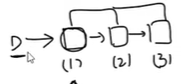 D
(1) (2) (3)